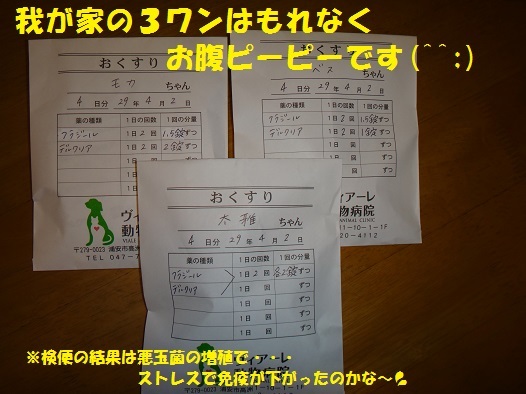 我が家の３ワンはもれなく
お腹ピーピーです(^^;)
おくすり
モカ ちゃん
4 日分 29 年 4 月 2 日
薬の種類 1日の回数 1回の分量
フラジール 1日 2 回 1.5錠 ずつ
ディルクリア 1日 2 回 2錠 ずつ
1日 回 ずつ
1日 回 ずつ
1日 回
ヴィ
動物
〒279-0023 浦安市高洲
TEL 047-7
おくすり
ベス ちゃん
4 日分 29 年 4 月 2 日
薬の種類 1日の回数 1回の分量
フラジール 1日 2 回 1.5錠 ずつ
ディルクリア 1日 2 回 1錠 ずつ
1日 回 ずつ
1日 回 ずつ
ずつ
ィアーレ
物病院
ANIMAL CLINIC
11-10-1-1F
20-4112
おくすり
太雅 ちゃん
4 日分 29 年 4 月 2 日
薬の種類 1日の回数 1回の分量
フラジール 1日 2 回 各2錠 ずつ
ディルクリア 1日 回 ずつ
1日 回 ずつ
1日 回 ずつ
1日 回 ずつ
ィアーレ
物病院
※検便の結果は悪玉菌の増殖で・・・
ストレスで免疫が下がったのかな～